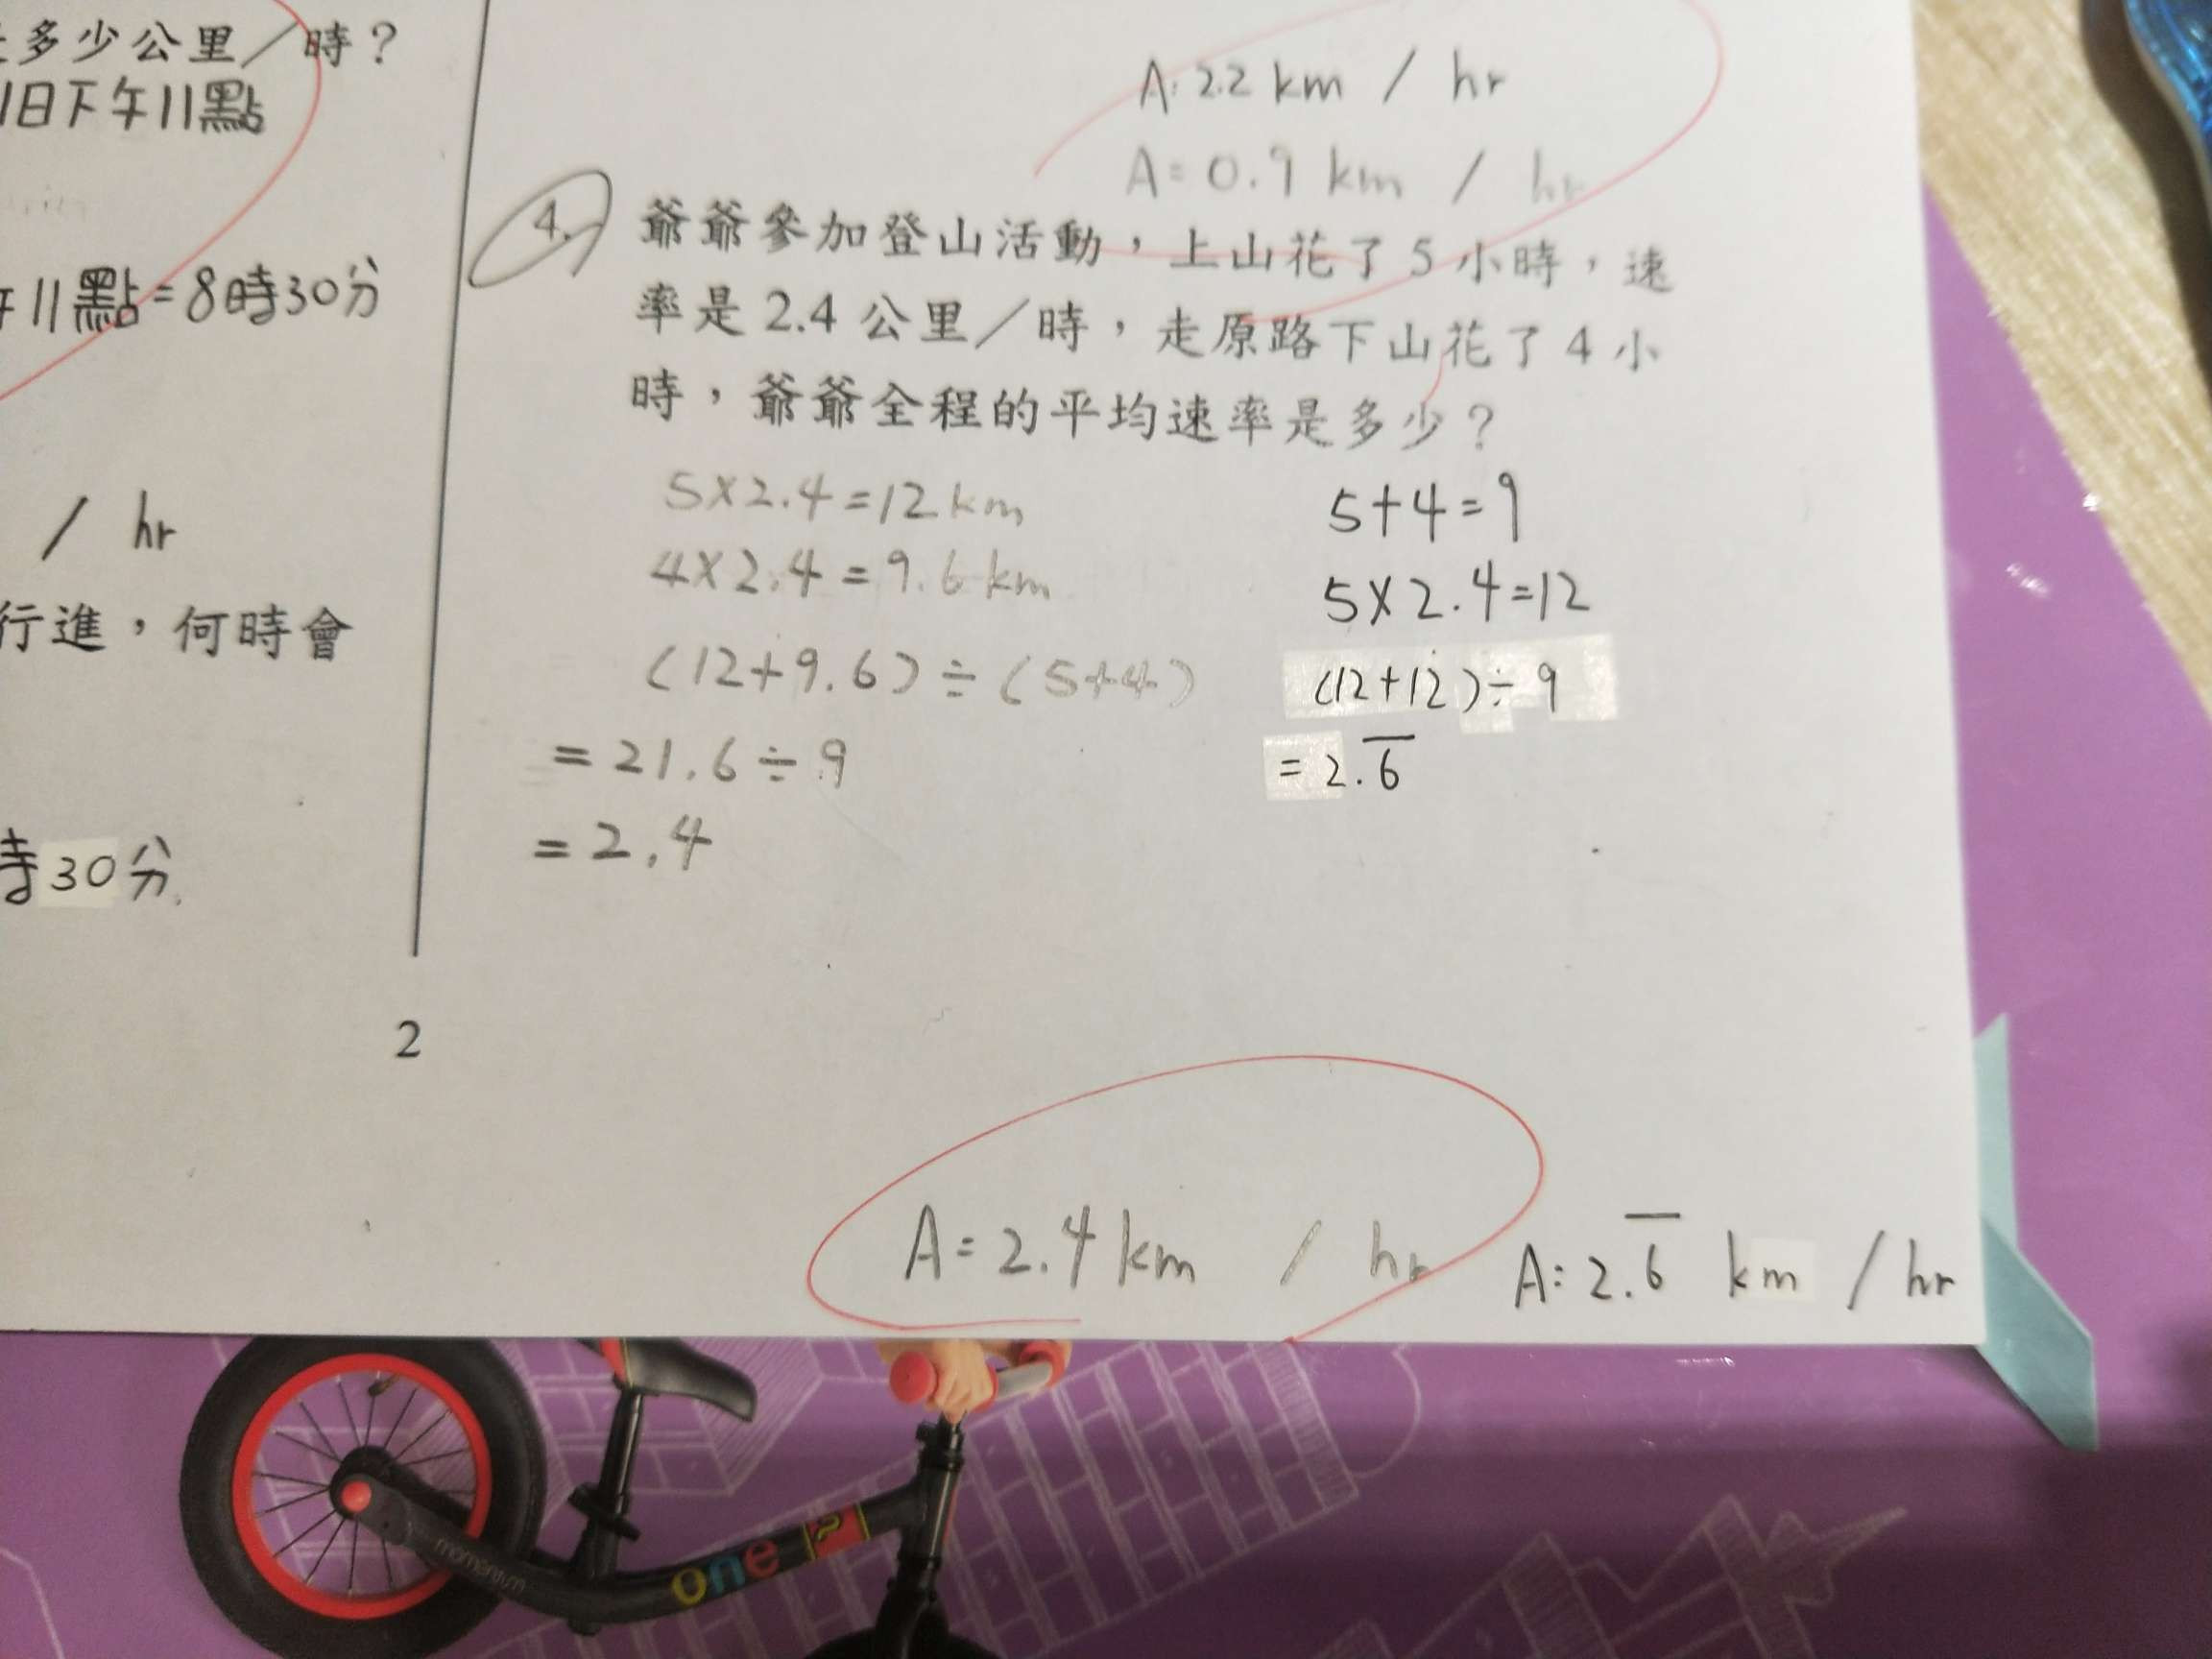 多少公里／時？
1日下午11點
午11點=8時30分
/ hr
行進，何時會
時30分
2
A:2.2 km / hr
A=0.9 km / hr
4. 爺爺參加登山活動，上山花了5小時，速
率是2.4公里／時，走原路下山花了4小
時，爺爺全程的平均速率是多少？
5×2.4=12km
4×2.4=9.6km
(12+9.6)÷(5+4)
=21.6÷9
=2.4
5+4=9
5×2.4=12
(12+12)÷9
=2.6̅
A=2.4km / hr
A:2.6̅ km / hr
momentum
one